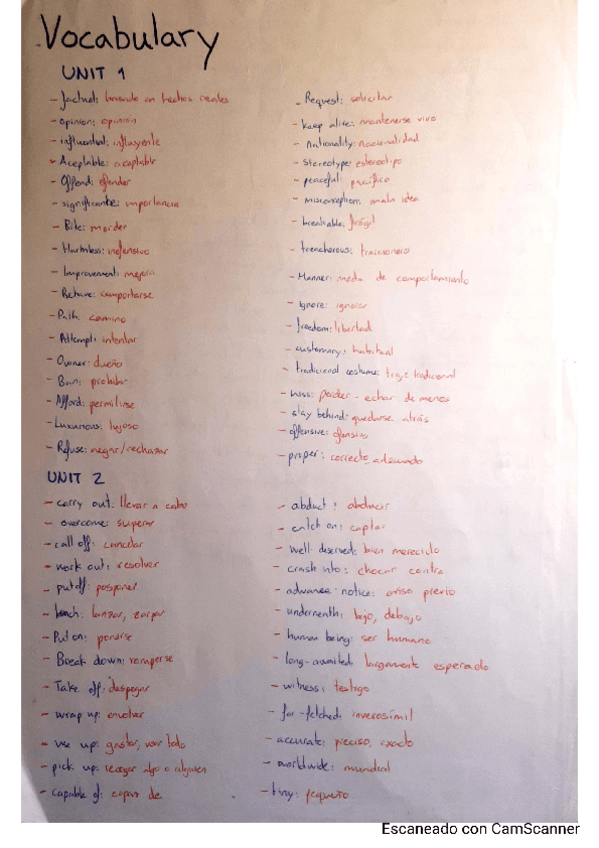 Vocabulary
UNIT 1
- factual: basado en hechos reales
- Opinion: opinión
- influential: influyente
- Aceptable: aceptable
- Offend: ofender
- significante: importancia
- Bite: morder
- Harmless: inofensivo
- Improvement: mejora
- Behave: comportarse
- Path: camino
- Attempt: intentar
- Owner: dueño
- Ban: prohibir
- Afford: permitirse
- Luxurious: lujoso
- Refuse: negar/rechazar
- Request: solicitar
- keep alive: mantenerse vivo
- Nationality: nacionalidad
- Stereotype: estereotipo
- peaceful: pacífico
- misconception: mala idea
- breakable: frágil
- treacherous: traicionero
- Manner: modo de comportamiento
- Ignore: ignorar
- freedom: libertad
- customary: habitual
- tradicional costume: traje tradicional
- Miss: perder - echar de menos
- stay behind: quedarse atrás
- offensive: ofensivo
- proper: correcto, adecuado
UNIT 2
- carry out: llevar a cabo
- overcome: superar
- call off: cancelar
- work out: resolver
- put off: posponer
- launch: lanzar, zarpar
- Put on: ponerse
- Break down: romperse
- Take off: despegar
- wrap up: envolver
- use up: gastar, usar todo
- pick up: recoger algo o alguien
- capable of: capaz de
- abduct: abducir
- catch on: captar
- well-deserved: bien merecido
- crash into: chocar contra
- advance-notice: aviso previo
- underneath: bajo, debajo
- human being: ser humano
- long-awaited: largamente esperado
- witness: testigo
- far-fetched: inverosímil
- accurate: preciso, exacto
- worldwide: mundial
- tiny: pequeño
Escaneado con CamScanner